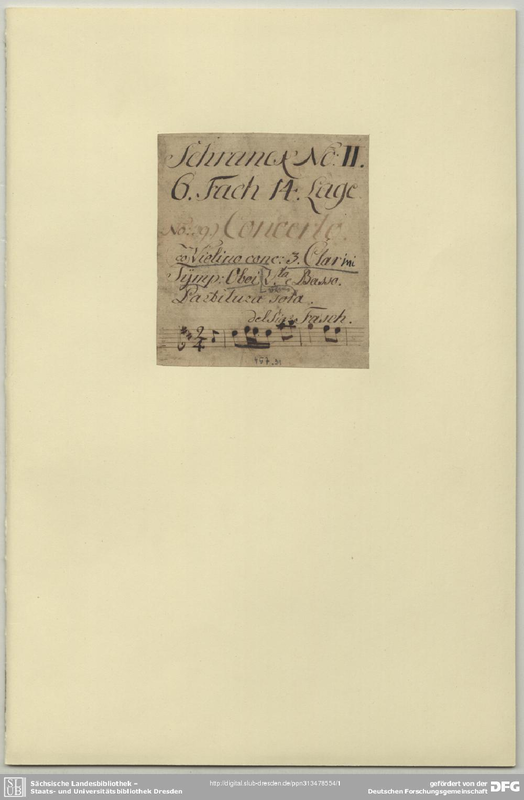 Schranck No: II.
6. Fach 14. Lage
No: 39) Concerto.
co Violino conc: 3. Clarini
Symp: Oboi e Basso.
Partitura sola.
del Sigr Fasch.
2/4
Sächsische Landesbibliothek –
Staats- und Universitätsbibliothek Dresden
http://digital.slub-dresden.de/ppn313479534/1
gefördert von der
Deutschen Forschungsgemeinschaft DFG
SLUB